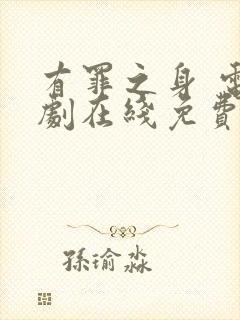 有罪之身 電
劇在綫免費
孫瑜淼